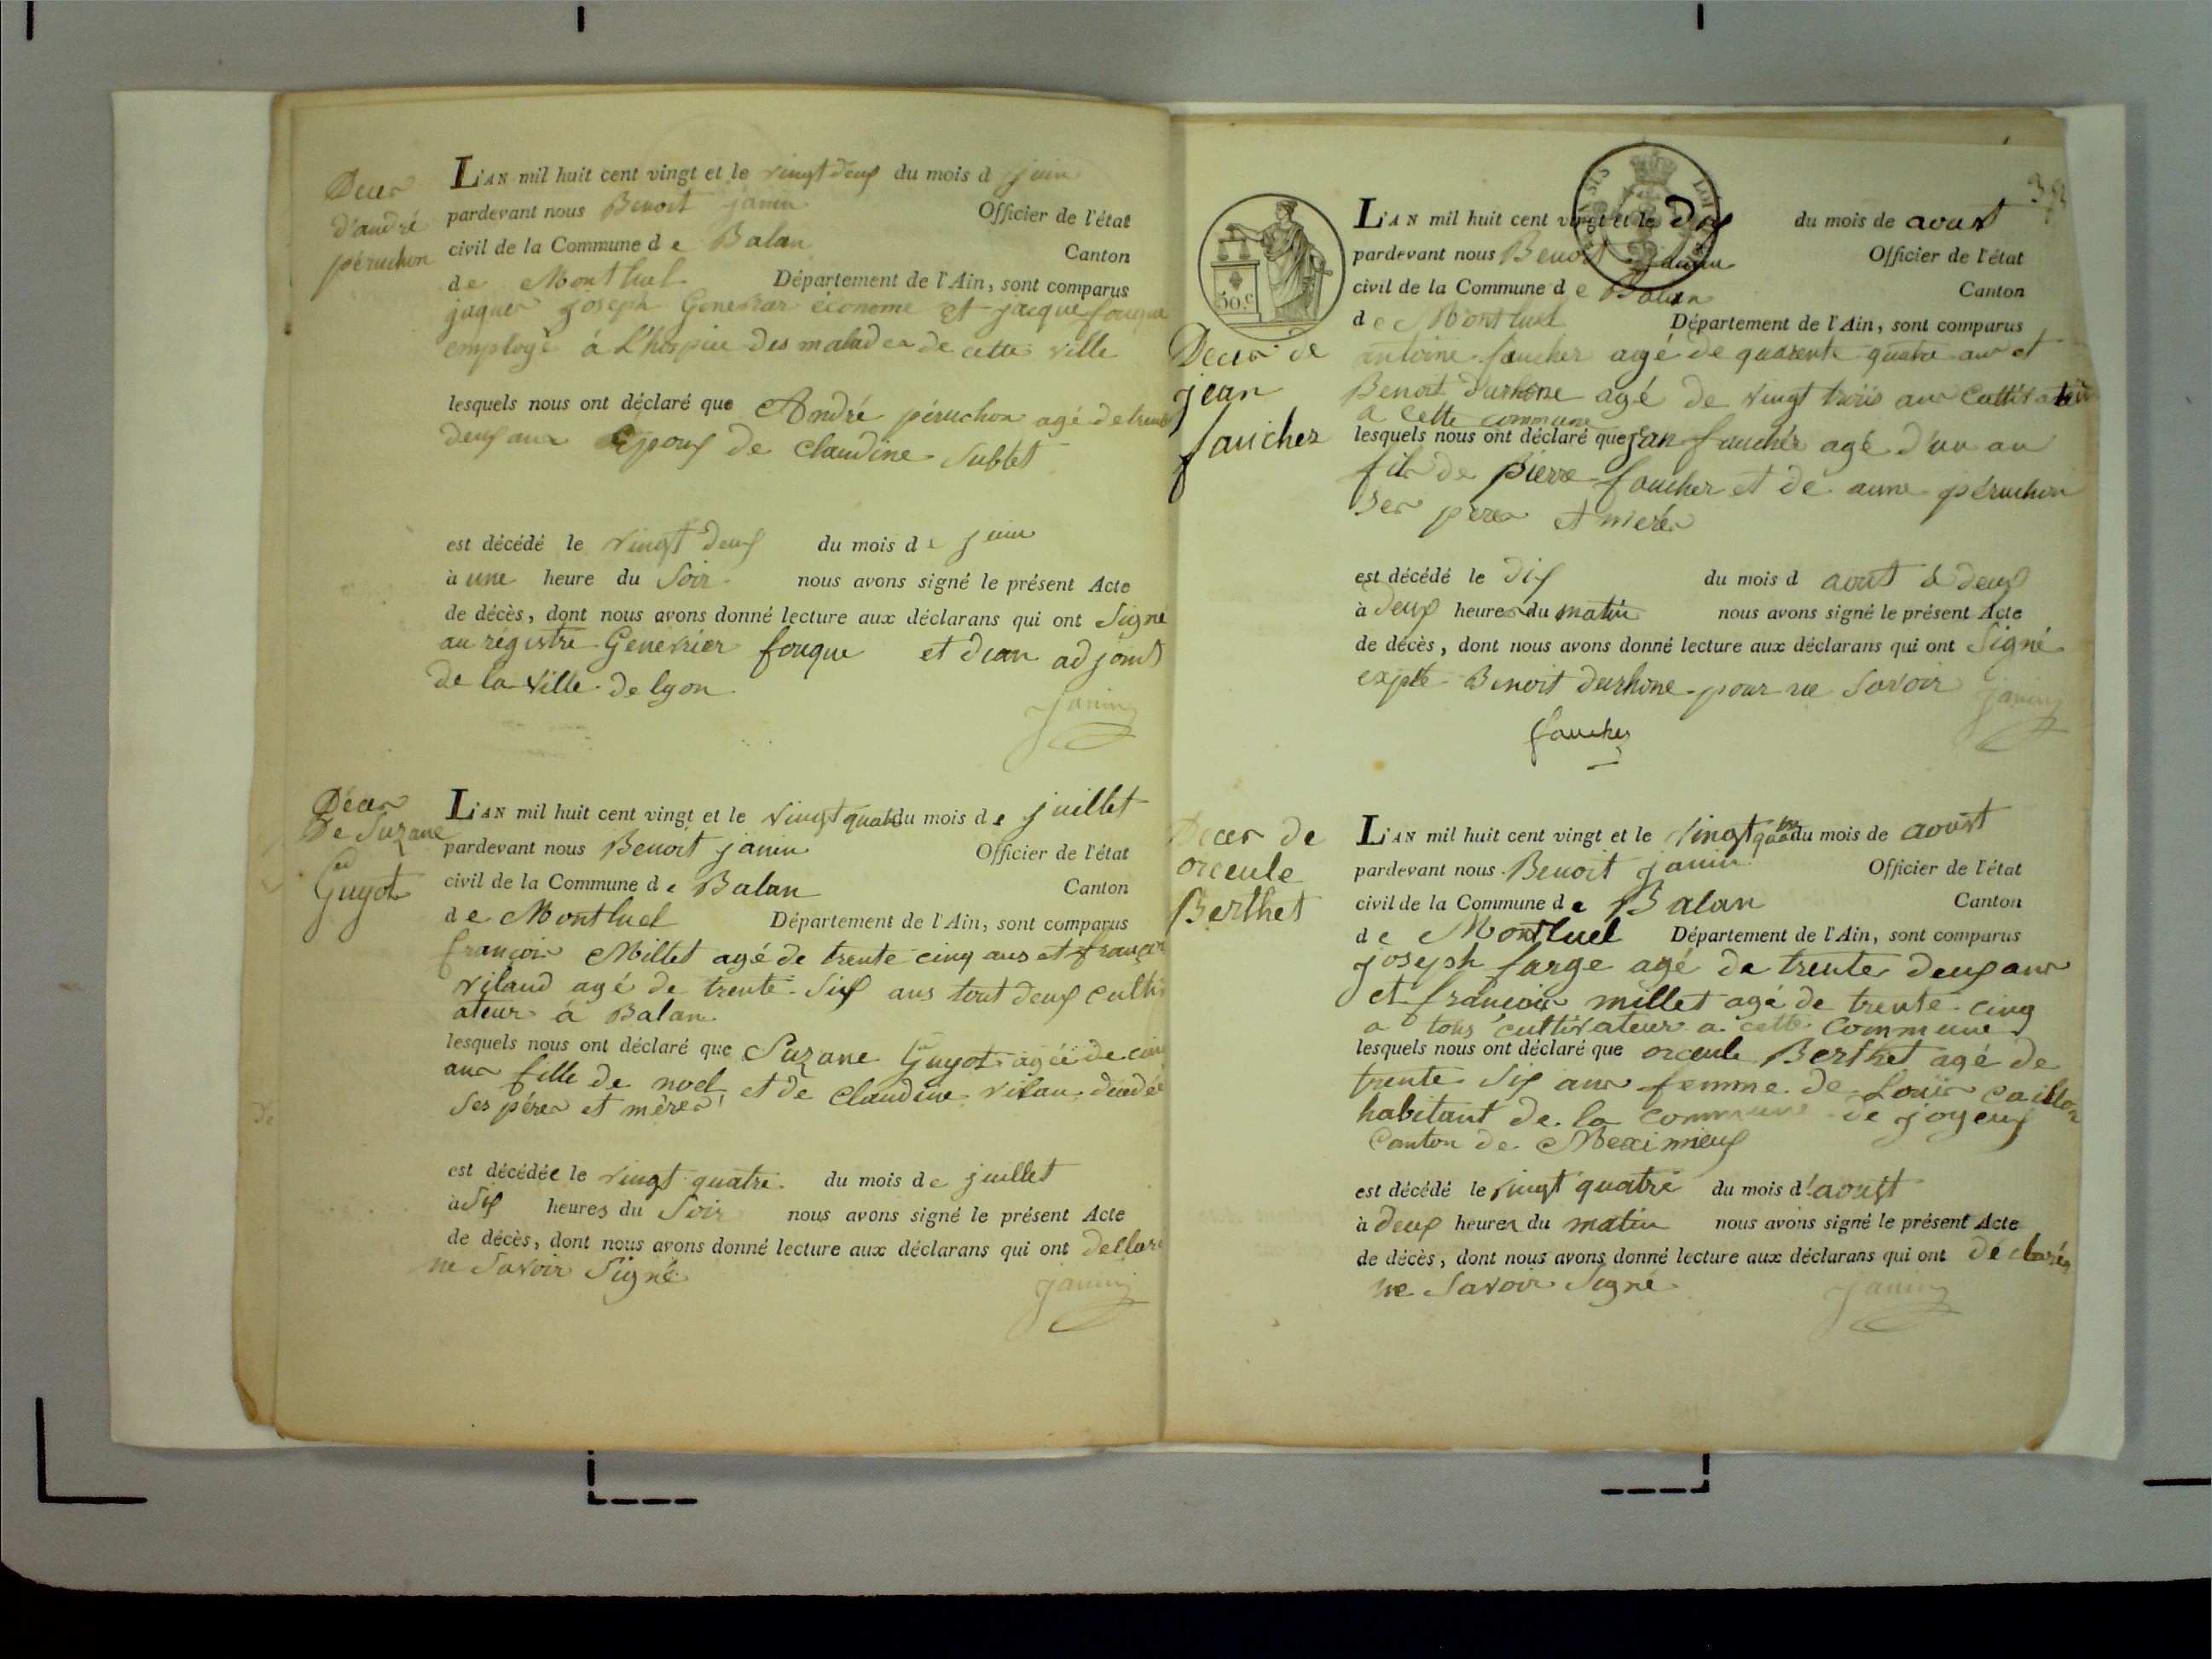 Deces
d'andré
péruchon
L'AN mil huit cent vingt et le vingt deux du mois d juin
pardevant nous Benoit janin Officier de l'état
civil de la Commune de Balan Canton
de Montluel Département de l'Ain, sont comparus
joseph économe et jacque fouque
employé á L'hospice des malades de cette ville
lesquels nous ont déclaré que André péruchon agé de trente
deux ans Epoux de Claudine Sublet
est décédé le vingt deux du mois de juin
à une heure du Soir nous avons signé le présent Acte
de décès, dont nous avons donné lecture aux déclarans qui ont Signe
au régistre Genevrier fouque et adjoint
de la Ville de lyon
Janin
Déces
De Suzane
Guyot
L'AN mil huit cent vingt et le vingt quatre du mois de juillet
pardevant nous Benoit janin Officier de l'état
civil de la Commune de Balan Canton
de Montluel Département de l'Ain, sont comparus
françois Millet agé de trente cinq ans et françois
vilaud agé de trente Six ans tout deux cultiv
ateur á Balan
lesquels nous ont déclaré que Suzane Guyot agée de cinq
ans fille de noel et de Claudine
Ses péres et mères
est décédée le vingt quatre du mois de juillet
à Six heures du Soir nous avons signé le présent Acte
de décès, dont nous avons donné lecture aux déclarans qui ont declaré
ne Savoir Signé
Janin
50 c.
Deces de
jean
faucher
L'AN mil huit cent vingt et le dix du mois de aoust
pardevant nous Benoit Janin Officier de l'état
civil de la Commune de Balan Canton
de Montluel Département de l'Ain, sont comparus
antoine faucher agé de quarente quatre ans et
Benoit Durhone agé de vingt trois ans Cultivateur
a cette commune
lesquels nous ont déclaré que jean faucher agé d'un an
fils de pierre faucher et de anne péruchon
Ses peres et merés
est décédé le dix du mois d aout à deux
à deux heures du matin nous avons signé le présent Acte
de décès, dont nous avons donné lecture aux déclarans qui ont Signé
expté Benoit Durhone pour ne Savoir Janin
faucher
Deces de
orceule
Berthet
L'AN mil huit cent vingt et le vingt quatre du mois de aoust
pardevant nous Benoit janin Officier de l'état
civil de la Commune de Balan Canton
de Montluel Département de l'Ain, sont comparus
joseph farge agé de trente deux ans
et françois millet agé de trente cinq
a tous cultivateur a cette Commune
lesquels nous ont déclaré que orceule Berthet agé de
trente Six ans femme de Louis Caillon
habitant de la Commune de joyeux
Canton de Meximieux
est décédé le vingt quatre du mois d'aoust
à deux heures du matin nous avons signé le présent Acte
de décès, dont nous avons donné lecture aux déclarans qui ont déclarés
ne Savoir Signé
Janin